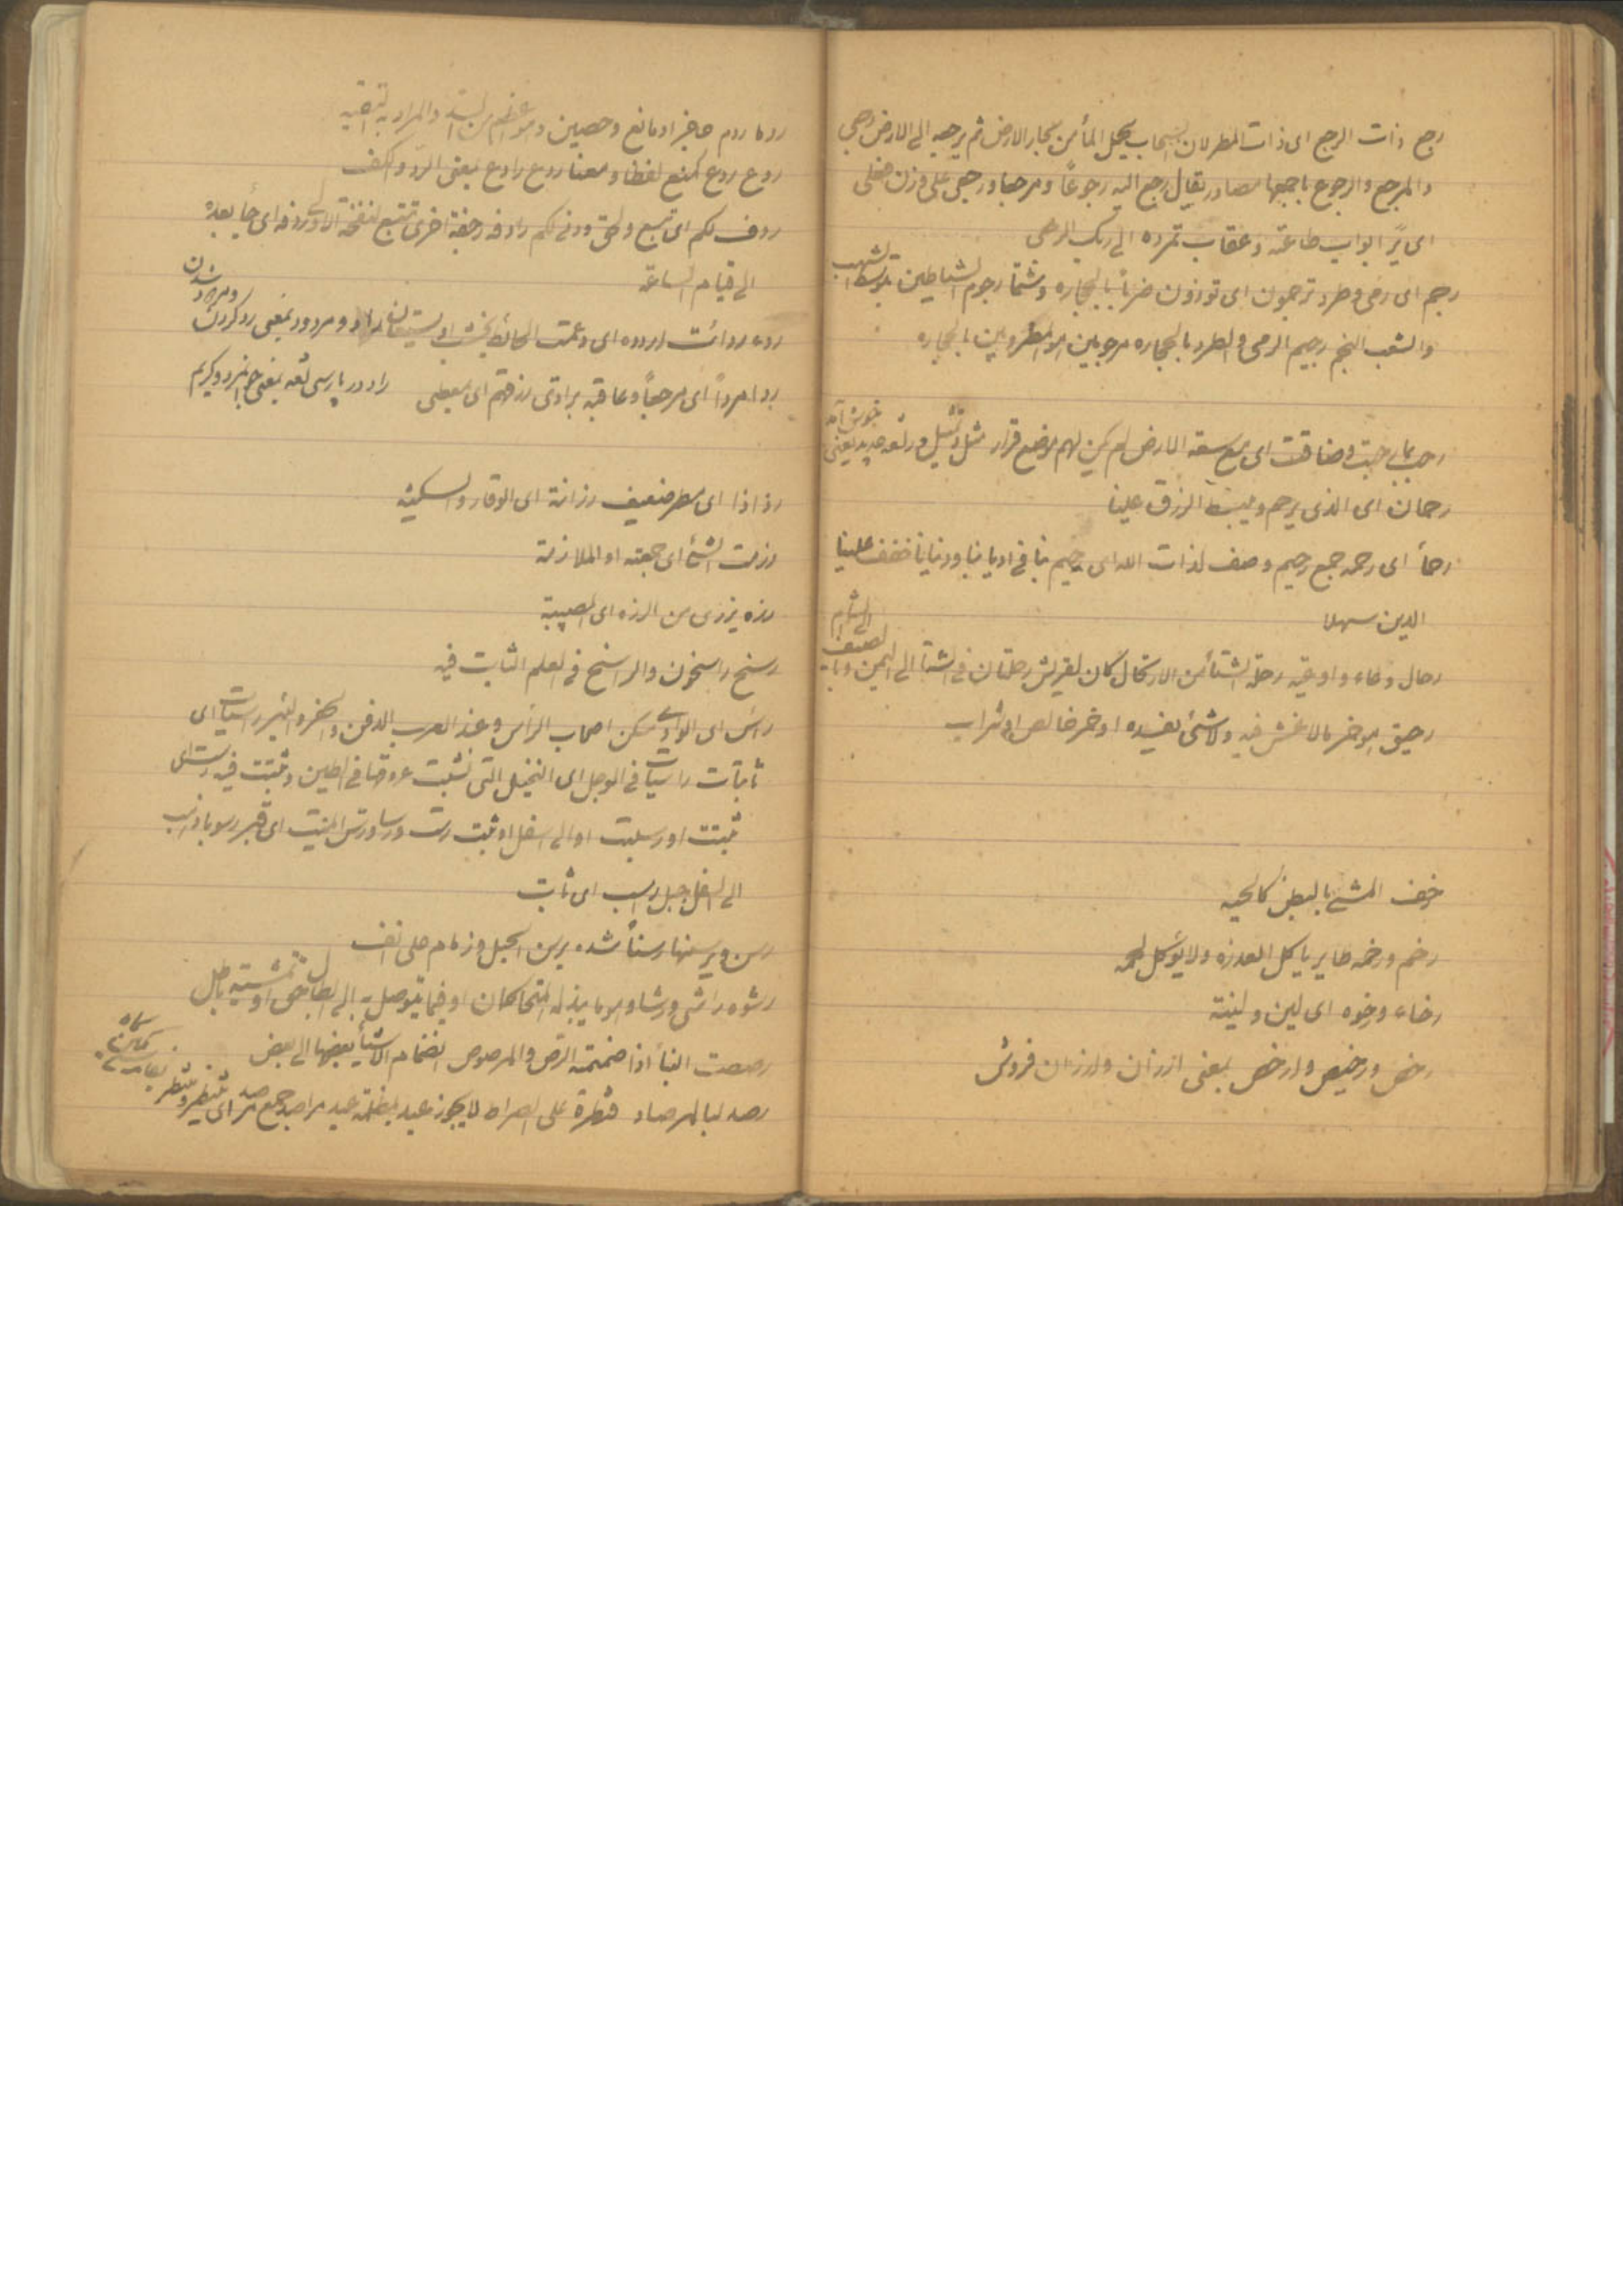 رجع ذات الرجع ای ذات المطر لان السحاب یحمل المأ من بحار الارض ثم یرجعه الی الارض رجعی
والمرجع والرجوع باجمعها مصادر یقال رجع الیه رجوعاً ومرجعا ورجعی علی وزن فعلی
ای ثواب طاعته وعقاب تمرده الی ربک الرجعی
رجم ای رمی وطرد ترجمون ای تؤذون ضرباً بالحجاره وشتما رجوم الشیاطین بتوسط الشهب
والشهب النجم رجیم الرمی والطرد بالحجاره مرجومین ای المطرودین بالحجاره
رحب بما رحبت وضاقت ای مع سعة الارض لم یکن لهم موضع قرار مثل وتمثیل ودر لغه جدید یعنی
خوش آمد
رحمان ای الذی یرحم ویبسط الرزق علینا
رحمأ ای رحمه جمع رحیم وصف لذات الله ای رحیم بنا فی ادیاننا ودنیانا خفف علینا
الدین سهلا
رحال وعاء واوعیه رحلة الشتأ من الارتحال کان لقریش رحلتان فی الشتأ الی الیمن وبا
لصیف
الی الشام
رحیق ای خمر مالا غش فیه ولا شئ یفسده او خمر خالص او شراب
زحف المشی بالبطن کالحیه
رخم ورخمه طایر یاکل العذره ولا یؤکل لحمه
رخاء ورخوه ای لین ولینة
رخص ورخیص وارخص بمعنی ارزان وارزان فروش
ردما ردم حاجز او مانع وحصین وهو اعظم من السد والمراد به التقیه
ردع ردع کمنع لفظا ومعنا ردع رادع بمعنی الرد والکف
ردف لکم ای تبع ولحق ودنی لکم رادفه رجفة اخری تتبع لنفخة الاولی رادفه ای جا بعده
الی قیام الساعة
رده رداءت اردده ای دعمت الحائط بخشب او یستیعان راد ومردود بمعنی رد کردن
ومردود شدن
ردا مرداً ای مرجعاً وعاقبه برادی رزقهم ای بمعطی راد در پارسی لغه بمعنی جوانمرد وکریم
رذاذا ای مطر ضعیف رزانة ای الوقار والسکینه
رزمت الشئ ای جمعته او الملازمة
رزه یزری من الرزه ای المصیبة
رسخ راسخون والراسخ فی العلم الثابت فیه
راس ای الوادی مسکن اصحاب الرأس وعند العرب الدفن والحفر والبئر راسیات ای
ثابتات راسیات فی الوحل ای النخیل التی نشبت عروقها فی الطین وثبتت فیه رست ای
ثبتت او رسلت او الی اسفل او ثبت رست ورسا ورس المیت ای قبر رسوبا ذهب
الی اسفل جبل راسب ای ثابت
رسن ویرسنها رسناً شده برسن الحبل وزمام علی انف
رشوه راشی ورشا وهو ما یبذله المتحاکمان او فیما یتوصل به الی ابطال حق او تمشیة باطل
رصصت البنأ اذا ضممته الرص والمرصوص انضمام الاشیأ بعضها الی بعض
رصد لبالمرصاد قنطرة علی الصراط لا یجوز عبد بمظلمة عبد مراصد جمع مرصد ای منتظر ومنتظر